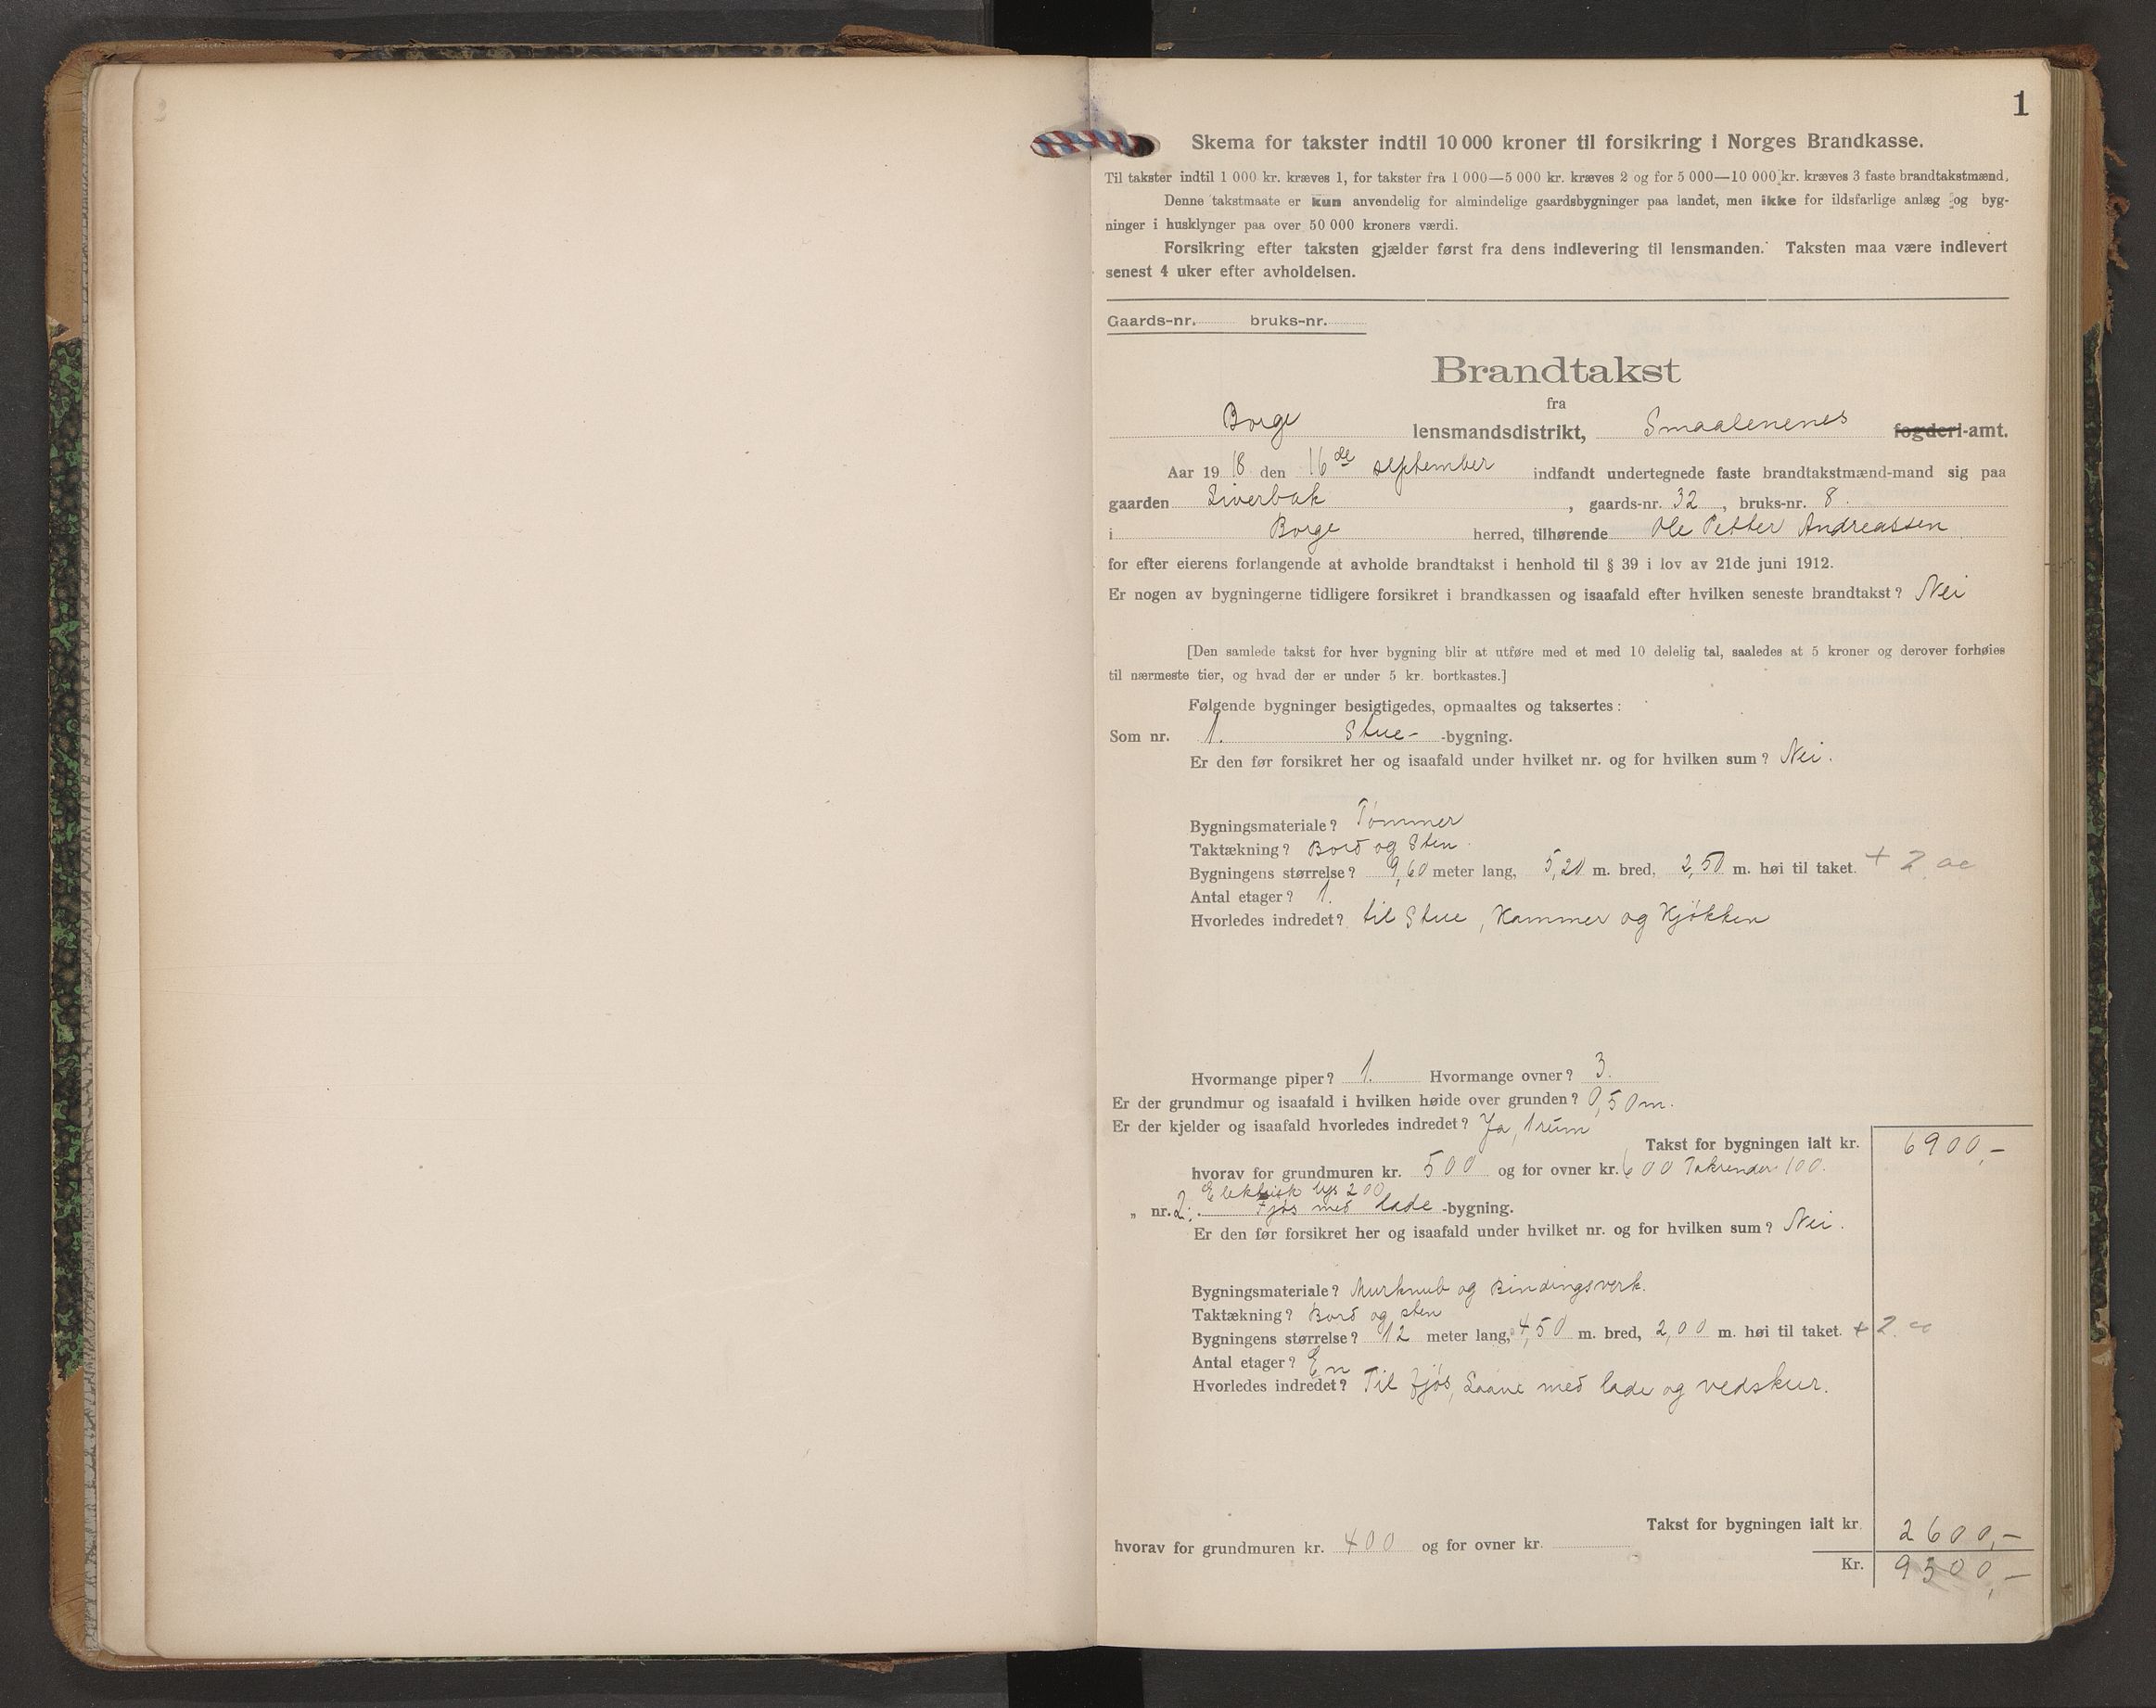 1
Skema for takster indtil 10 000 kroner til forsikring i Norges Brandkasse.
Til takster indtil 1 000 kr. kræves 1, for takster fra 1 000—5 000 kr. kræves 2 og for 5 000—10 000 kr. kræves 3 faste brandtakstmænd.
Denne takstmaate er kun anvendelig for almindelige gaardsbygninger paa landet, men ikke for ildsfarlige anlæg og byg-
ninger i husklynger paa over 50 000 kroners værdi.
Forsikring efter taksten gjælder først fra dens indlevering til lensmanden. Taksten maa være indlevert
senest 4 uker efter avholdelsen.
Gaards-nr. bruks-nr.
Brandtakst
fra
Borge lensmandsdistrikt, Smaalenenes fogderi-amt.
Aar 1918 den 16de september indfandt undertegnede faste brandtakstmænd-mand sig paa
gaarden Liverbak, gaards-nr. 32, bruks-nr. 8.
i Borge herred, tilhørende Ole Petter Andreassen
for efter eierens forlangende at avholde brandtakst i henhold til § 39 i lov av 21de juni 1912.
Er nogen av bygningerne tidligere forsikret i brandkassen og isaafald efter hvilken seneste brandtakst? Nei
[Den samlede takst for hver bygning blir at utføre med et med 10 delelig tal, saaledes at 5 kroner og derover forhøies
til nærmeste tier, og hvad der er under 5 kr. bortkastes.]
Følgende bygninger besigtigedes, opmaaltes og taksertes:
Som nr. 1. Stue- -bygning.
Er den før forsikret her og isaafald under hvilket nr. og for hvilken sum? Nei.
Bygningsmateriale? Tømmer
Taktækning? Bord og Sten.
Bygningens størrelse? 9,60 meter lang, 5,20 m. bred, 2,50 m. høi til taket. + 2
Antal etager? 1.
Hvorledes indredet? til Stue, Kammer og Kjøkken
Hvormange piper? 1. Hvormange ovner? 3.
Er der grundmur og isaafald i hvilken høide over grunden? 0,50 m.
Er der kjelder og isaafald hvorledes indredet? Ja, 1 rum
Takst for bygningen ialt kr. 6900,-
hvorav for grundmuren kr. 500 og for ovner kr. 600 Takrender 100.
Elektrisk lys 200
„ nr. 2. Fjøs med lade -bygning.
Er den før forsikret her og isaafald under hvilket nr. og for hvilken sum? Nei.
Bygningsmateriale? Murknub og Bindingsverk.
Taktækning? Bord og sten
Bygningens størrelse? 12 meter lang, 4,50 m. bred, 2,00 m. høi til taket. + 2
Antal etager? En
Hvorledes indredet? Til fjøs, Laave med lade og vedskur.
Takst for bygningen ialt kr. 2600,-
hvorav for grundmuren kr. 400 og for ovner kr.
Kr. 9500,-